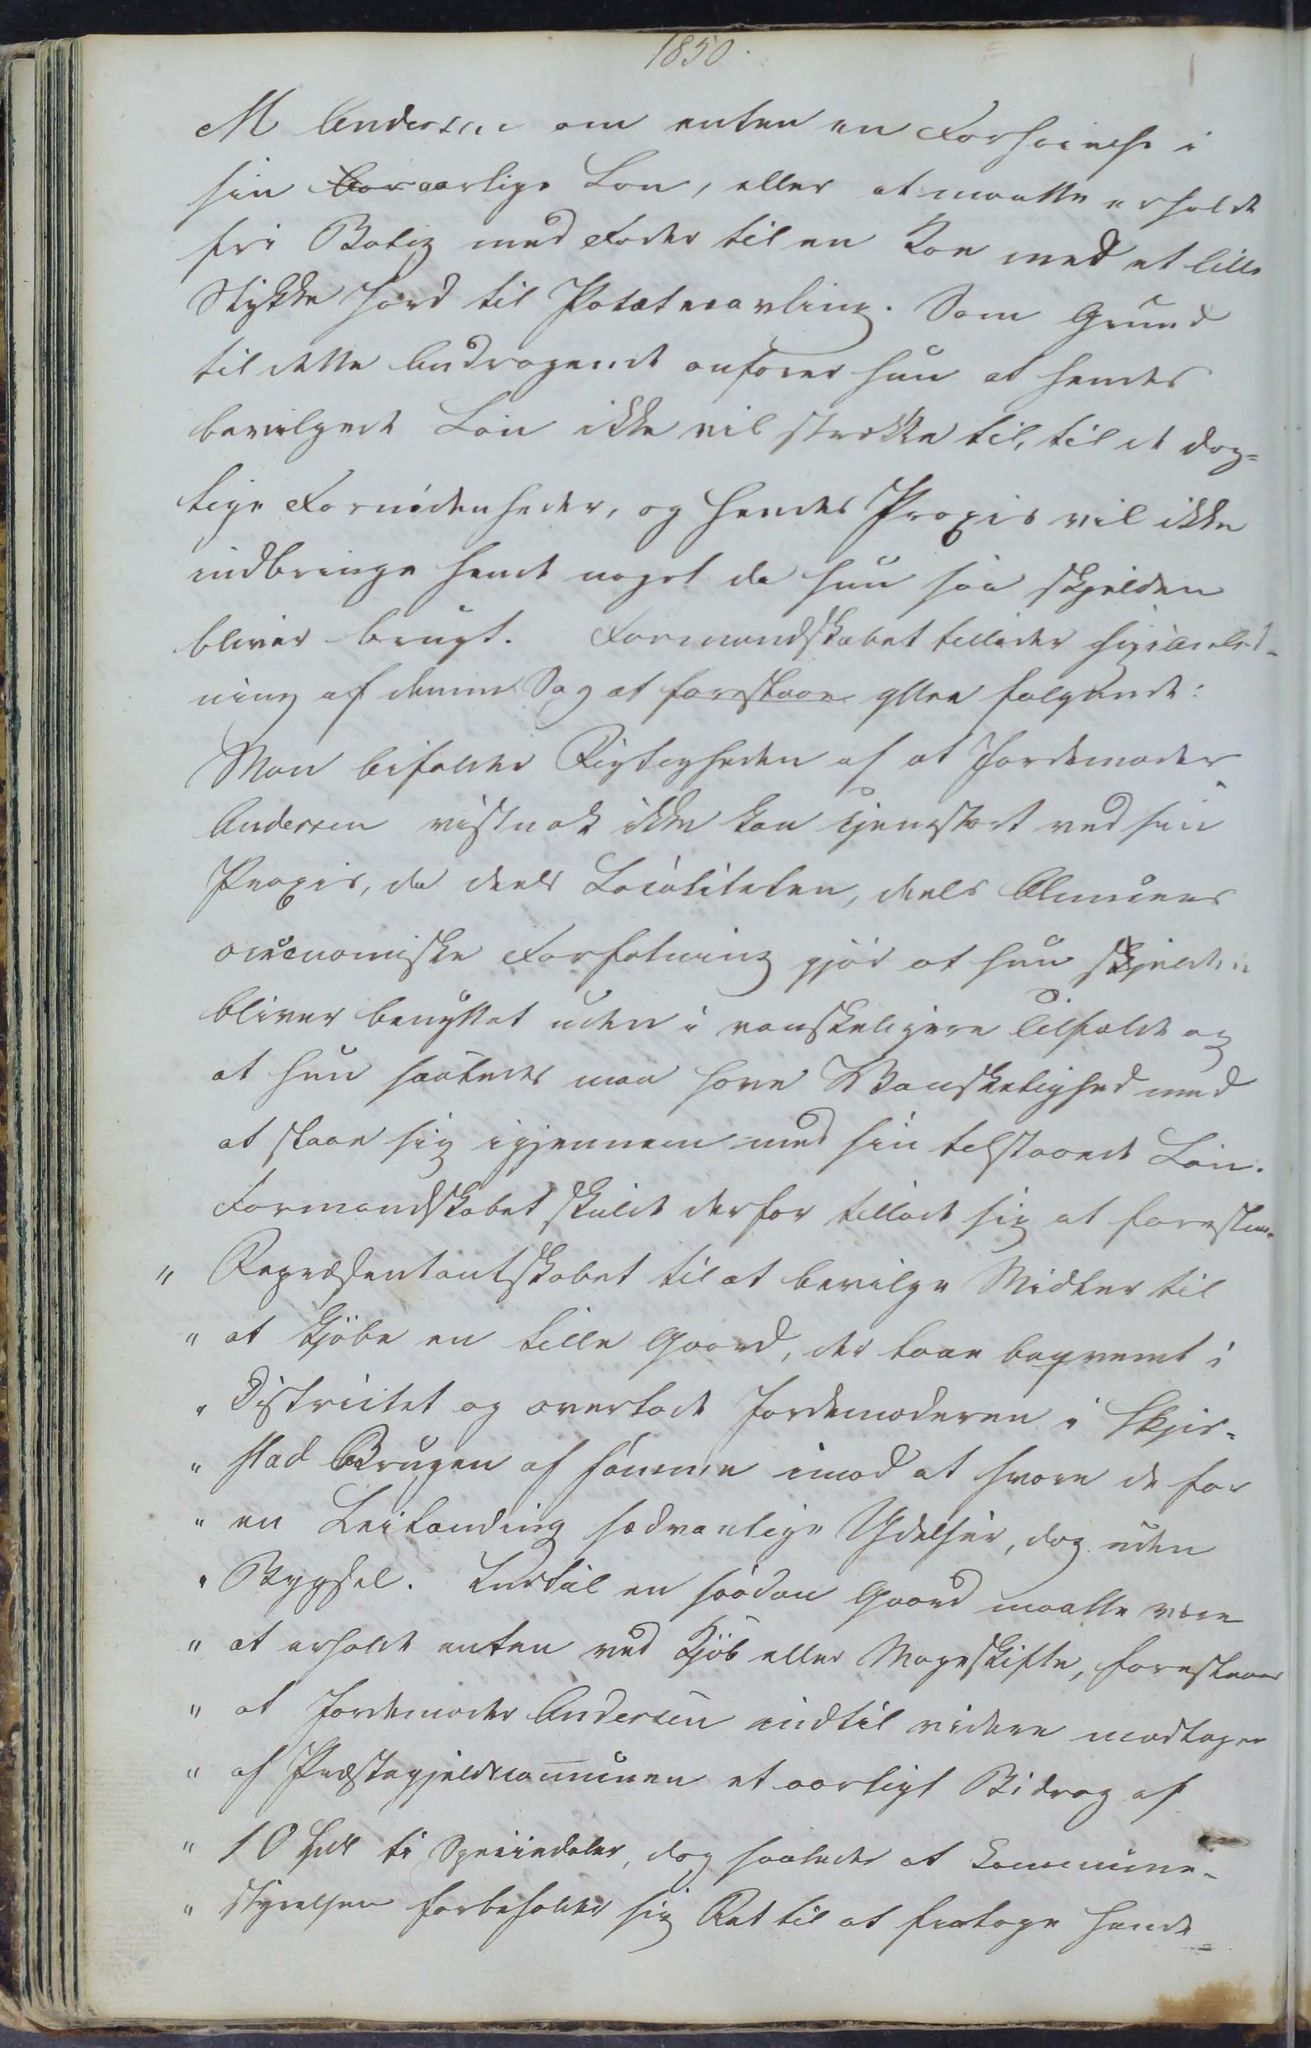 1850.
M Andersen om enten en Forhøielse i
sin ~~Lov~~ aarlige Løn, eller at maatte erholde
fri Bolig med Foder til en Koe med et lille
Stykke Jord til Potætesavling. Som Grund
til dette Andragende anfører hun at hendes
bevilgede Løn ikke vil strække til, til de dag-
lige Fornødenheder, og hendes Praxis vil ikke
indbringe hende noget da hun saa skjelden
bliver brugt. Formandskabet tillader sig i Anled-
ning af denne Sag at ~~forestaae~~ yttre følgende:
Man bifalder Rigtigheden af at Jordemoder
Andersen vistnok ikke kan tjene stort ved sin
Praxis, da deels Localiteten, deels Almuens
oeconomiske Forfatning gjør at hun skjelden
bliver benyttet uden i vanskeligere Tilfælde og
at hun saaledes maa have Vanskelighed med
at slaae sig igjennem med sin tilstaaede Løn.
Formandskabet skulde derfor tillade sig at foreslaae
" Repræsentantskabet til at bevilge Midler til
" at kjøbe en lille Gaard, der laae beqvemt i
" Districtet og overlade Jordemoderen i Skjer-
" stad Brugen af samme imod at svare de for
" en Leilænding sædvanlige Ydelser, dog uden
" Bygsel. Indtil en saadan Gaard maatte være
" at erholde enten ved Kjøb eller Mageskifte, foreslaaes
" at Jordemoder Andersen indtil videre modtager
" af Præstegjeldscommunen et aarligt Bidrag af
" 10 Spdl ti Speciedaler, dog saaledes at Commune-
" styrelsen forbeholder sig Ret til at fratage hende